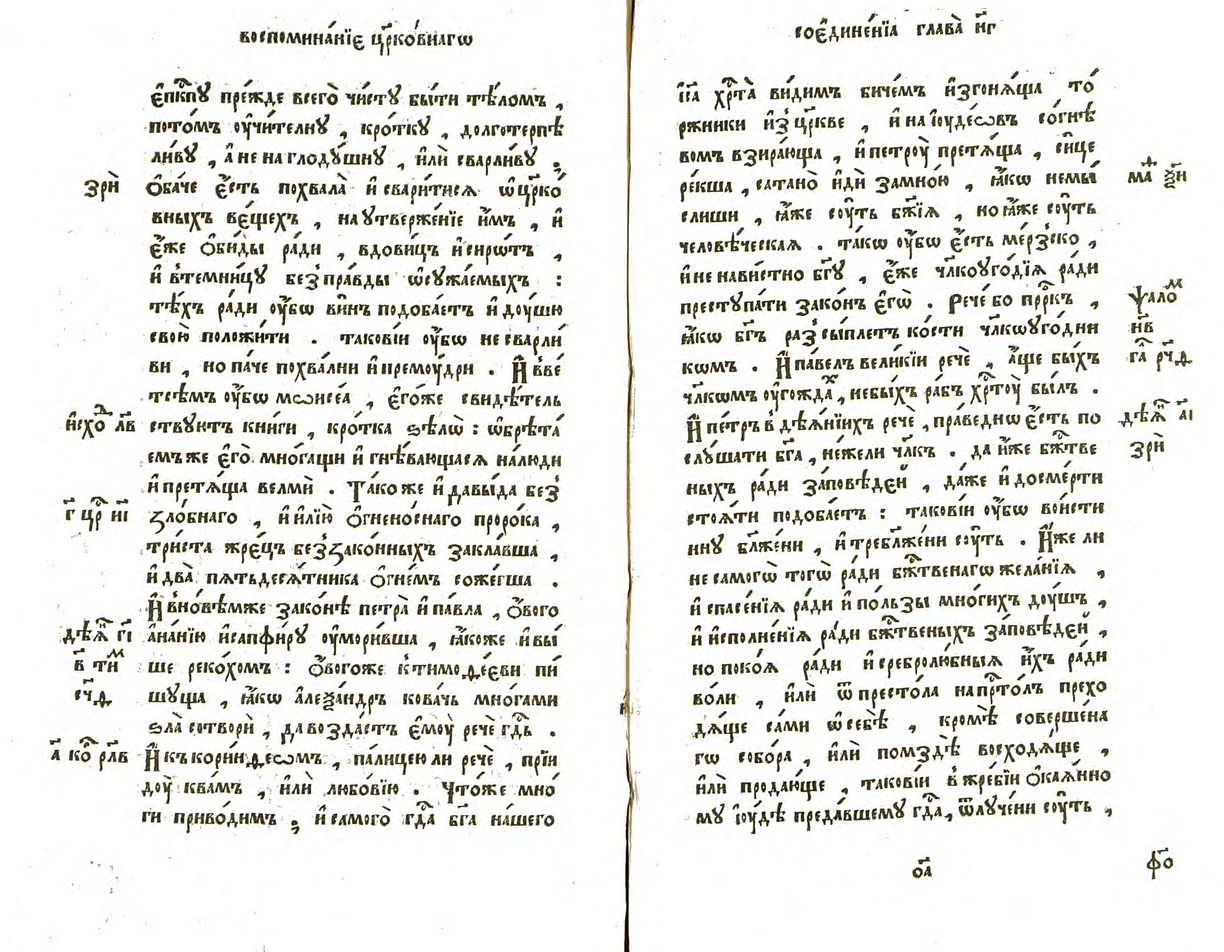 воспомина́нїє цр҃ко́внагѡ
є҆пⷭ҇кпꙋ пре́жде всего̀ чи́стꙋ бы́ти тѣ́ломъ ,
пото́мъ ᲂу҆чи́телнꙋ , кро́ткꙋ , долготерпѣ
ли́вꙋ , а҆ не на глодꙋ́шнꙋ , и҆лѝ сварли́вꙋ ;
зрѝ
Ѻ҆ба́че є҆́сть похвала̀ и҆ свари́тисѧ ѡ҆ цр҃ко́
вныхъ ве́щехъ , на ᲂутверже́нїе и҆̀мъ , и҆
є҆́же ѻ҆би́ды ра́ди , вдови́цъ и҆ сирѡ́тъ ,
и҆ в̾темни́цꙋ без̾пра́вды ѡ҆сꙋжа́емыхъ :
тѣ́хъ ра́ди ᲂу҆́бѡ ви́нъ подоба́етъ и҆ дꙋ́шꙋ
свою̀ положи́ти . такові́и ᲂу҆́бѡ не сварли́
ви , но па́че похва́лни и҆ премꙋ́дри . И҆ в̾ве́
тсѣмъ ᲂу҆́бѡ мѡисе́а , є҆го́же свидѣ́тель
и҆схо́ⷣ л҃в
ствꙋютъ кни́ги , кро́тка ѕѣлѡ̀ : ѡ҆брѣта́
емъ же є҆го̀ мно́гащи и҆ гнѣ́вающасѧ на́люди
и҆ претѧ́ща велмѝ . Та́ко же и҆ давы́да без̾
г҃ цр҃ⷭ҇ и҃і
ѕло́бнаго , и҆ и҆лїю̀ ѻ҆гнено́снаго проро́ка ,
три́ста жрє́цъ без̾зако́нныхъ закла́вша ,
и҆ два̀ пѧтьдесѧ́тника ѻ҆гне́мъ соже́гша .
И҆ в̾но́вѣмже зако́нѣ петра̀ и҆ па́вла , ѻ҆́вого
дѣѧ҇ⷩ҇ г҃і
а҆на́нїю и҆ сапфи́рꙋ ᲂу҆мори́вша , ꙗ҆́коже и҆ вы́
в҃ тиⷨ
ше реко́хомъ : ѻ҆́вогоже к̾ тимоѳе́єви пи́
сч҃ѳ
шꙋща , ꙗ҆́кѡ а҆леѯа́ндръ кова́чь мно́гами
ѕла̀ сотворѝ , да возда́стъ є҆мꙋ̀ речѐ гдⷭ҇ь .
а҃ коⷬ҇ рл҃в
И҆ къ корі́нѳесѡмъ , па́лицею ли речѐ , прїи
дꙋ̀ к вамъ , и҆лѝ любо́вїю . Что́же мно́
ги приво́димъ ; и҆ самого̀ гдⷭ҇а бг҃а на́шего
соєдине́нїѧ глава̀ н҃г
і҆ⷭ҇са хрⷭ҇та̀ ви́димъ бичемъ и҆згонѧ́ща то́
ржники и҆з̾ цр҃кве , и҆ на і҆ꙋде́ѡвъ со́гнѣ
вомъ взира́юща , и҆ петрꙋ̀ претѧ́ща , си́це
маⷴ ѯ҃и
ре́кша , сатано̀ и҆дѝ замно́ю , ꙗ҆́кѡ немы́
слиши , ꙗ҆́же сꙋ́ть бж҃їѧ , но ꙗ҆́же сꙋ́ть
человѣ́ческаѧ . та́кѡ ᲂу҆́бѡ є҆́сть ме́рз̾ско ,
и҆ не нави́стно бг҃ꙋ , є҆́же чл҃коꙋго́дїѧ ра́ди
ѱалоⷨ
преступа́ти зако́нъ є҆гѡ̀ . Рече́ бо прⷪ҇ркъ ,
н҃в
ꙗ҆́кѡ бг҃ъ раз̾сы́плетъ ко́сти чл҃кѡꙋго́дни
га҃ рч҃ѳ
кѡмъ . И҆ па́велъ вели́кїи речѐ , а҆́ще бы́хъ
чл҃кѡмъ ᲂу҆гождаⷯ , небы́хъ ра́бъ хрⷭ҇тꙋ̀ бы́лъ .
дѣѧⷩ҇ а҃і
И҆ пе́тръ в̾ дѣѧ́нїихъ речѐ , пра́веднѡ є҆́сть по
зрѝ
слꙋ́шати бг҃а , не́жели чл҃къ . да и҆́же бжⷭ҇тве
ныхъ ра́ди за́повѣдєй , да́же и҆ до сме́рти
стоѧ́ти подоба́етъ : такові́и ᲂу҆́бѡ вои́сти
ннꙋ бл҃же́ни , и҆ требл҃же́ни сꙋ́ть . И҆́же ли
не самогѡ̀ тогѡ̀ ра́ди бжⷭ҇твенагѡ жела́нїѧ ,
и҆ спасе́нїѧ ра́ди и҆ по́льзы мно́гихъ дꙋ́шъ ,
и҆ и҆сполне́нїѧ ра́ди бжⷭ҇твеныхъ за́повѣдєй ,
но поко́ѧ ра́ди и҆ сребролю́бныѧ и҆́хъ ра́ди
во́ли , и҆лѝ ѿ престо́ла на прⷭ҇то́лъ прехо
дѧ́ще са́ми ѡ҆ себѣ̀ , кромѣ̀ соверше́на
гѡ собо́ра , и҆лѝ помздѣ̀ восходѧ́ще ,
и҆лѝ продаю́ще , такові́и в̾ жре́бїи ѻ҆каѧ́нно
мꙋ і҆ꙋ́дѣ преда́вшемꙋ гдⷭ҇а , ѿлꙋче́ни сꙋ́ть ,
о҃а
ф҃о